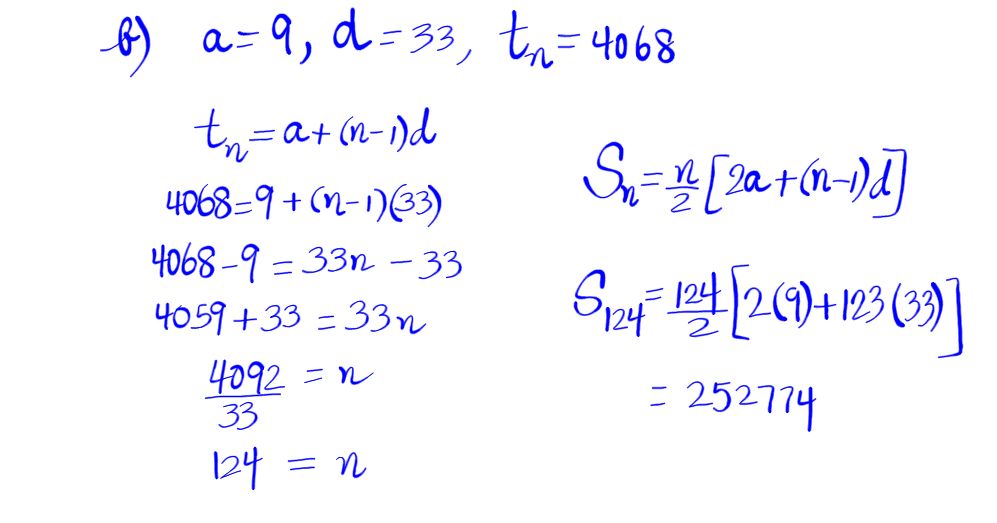 b) a = 9, d = 33, tₙ = 4068
tₙ = a + (n-1)d
4068 = 9 + (n-1)(33)
4068 - 9 = 33n - 33
4059 + 33 = 33n
4092/33 = n
124 = n
Sₙ = n/2 [2a + (n-1)d]
S₁₂₄ = 124/2 [2(9) + 123(33)]
= 252774